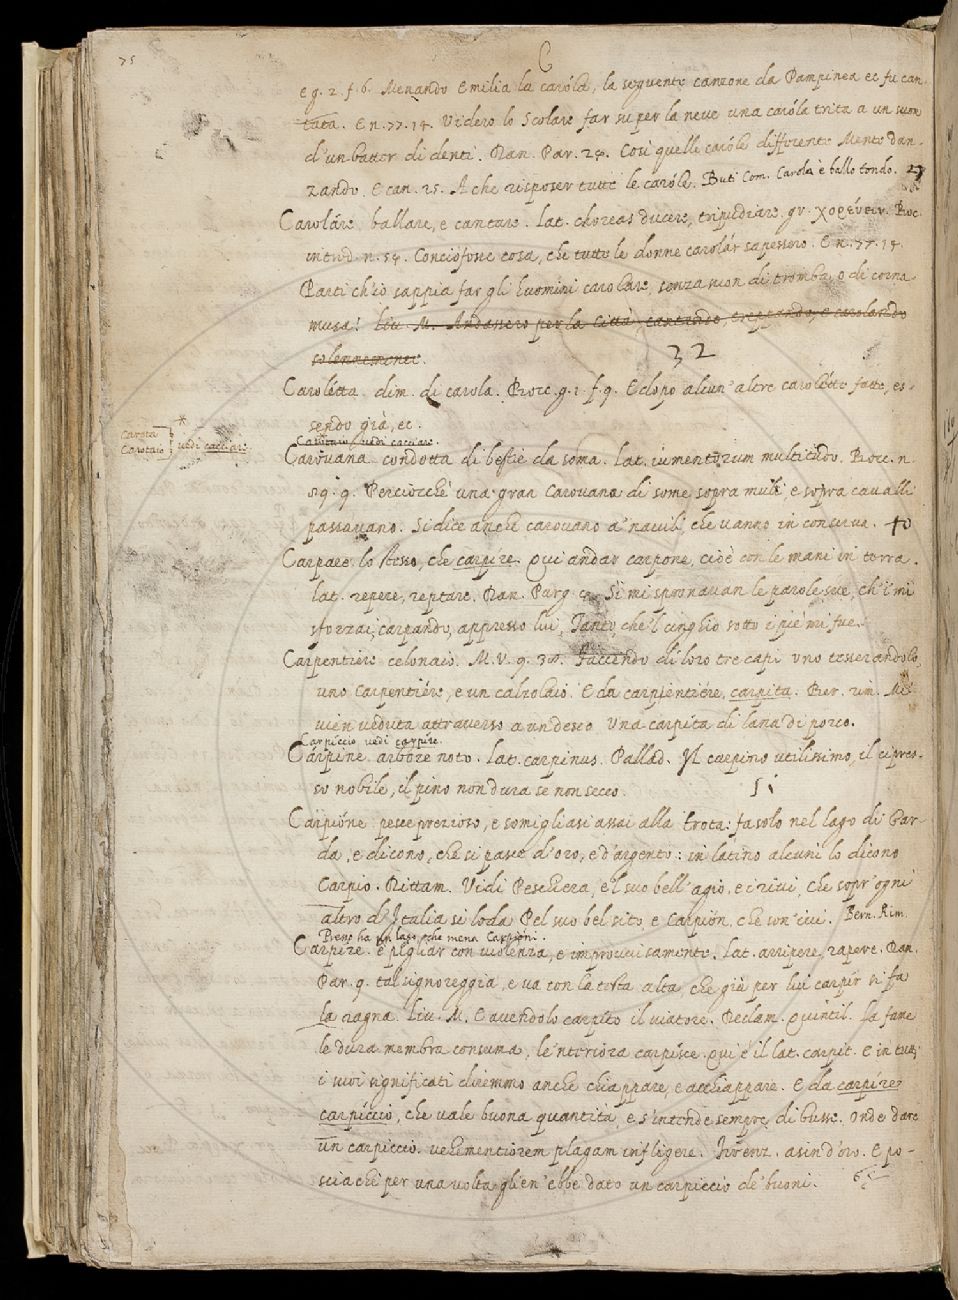 75
C
e g. 2. f. 6. Menando Emilia la caróla, la seguente canzone da Pampinea ec fu can-
tata. E n. 77. 14. Videro lo Scolare far su per la neve una caróla trita a un suon
d'un batter di denti. Dan. Par. 24. Così quelle caróle differente Mente dan-
zando. E can. 25. A che risposer tutte le caróle. Buti Com. Carola è ballo tondo. 27
Caroláre ballare, e cantare. Lat. choreas ducere, tripudiare. gr. χορέυειν. Bocc.
introd. n. 54. Conciófosse cosa, che tutte le donne carolár sapessero. E n. 77. 14.
Parti ch'io sappia far gli huomini carolare, senza suon di tromba, o di corna
musa! Liv. M. Andassero per la Città, cantando, e carolando
solennemente.
32
Carolétta dim. di carola. Bocc. g. 1. f. 9. E dopo alcun'altre carolétte fatte, es-
sendo già, ec.
*
Carota
Carotaio
vedi cacciare
Carotaio vedi cacciare.
Carouana condotta di bestie da soma. Lat. iumentorum multitudo. Bocc. n.
89. 9. Perciocchè una gran Carouana di some sopra muli, e sopra cavalli
passávano. Si dice anche carouano a' nauili, che uanno in conserua. 40
Carpare lo stesso, che carpíre. Qui andar carpone, cioè con le mani in terra.
Lat. repere, reptare. Dan. Purg. 4. Sì mi spronauan le parole sue, ch'i' mi
sforzai, carpando, appresso lui, Tanto, che'l cinghio sotto i piè mi fue.
Carpentiére M. V. 9. 38. Faccendo di loro tre capi uno tesserandolo,
uno carpentiére, e un calzolaio. E da carpentiére, carpita. Ber. rim. Mi
uien ueduta attrauerso a un desco Una carpita di lana di porco.
Carpiccio vedi carpíre.
Carpine arbore noto. Lat. carpinus. Pallad. Il carpino utilissimo, il cipres-
so nobile, il pino non dura se non secco. 51
Carpióne pesce prezioso, e somigliasi assai alla trota: fa solo nel lago di Gar-
da, e dicono, che si pasce d'oro, e d'argento: in latino alcuni lo dicono
Carpio. Dittam. Vidi Peschiera, e'l suo bell'agio, e i riui, che sopr'ogni
altro d'Italia si loda Pel suo bel sito, e Carpion, che son' iui. Bern. Rim.
Preno ha un lago che mena Carpioni.
Carpíre è pigliar con uiolenza, e improuuisamente. Lat. arripere, rapere. Dan.
Par. 9. tal signoreggia, e ua con la testa alta che già per lui carpír si fa
la ragna. Liu. M. E auendolo carpito il uiatore. Declam. Quintil. La fame
le dura membra consuma, le'nteriora carpisce. Qui è il lat. carpit. E in tutti
i suoi significati diremmo anche chiappare, e acchiappare. E da carpíre
carpíccio, che uale buona quantità, e s'intende sempre di busse. Onde dare
un carpiccio. uehementiorem plagam infligere. Firenz. asin d'oro. E po-
sciachè per una uolta gli en' ebbe dato un carpiccio de' buoni.